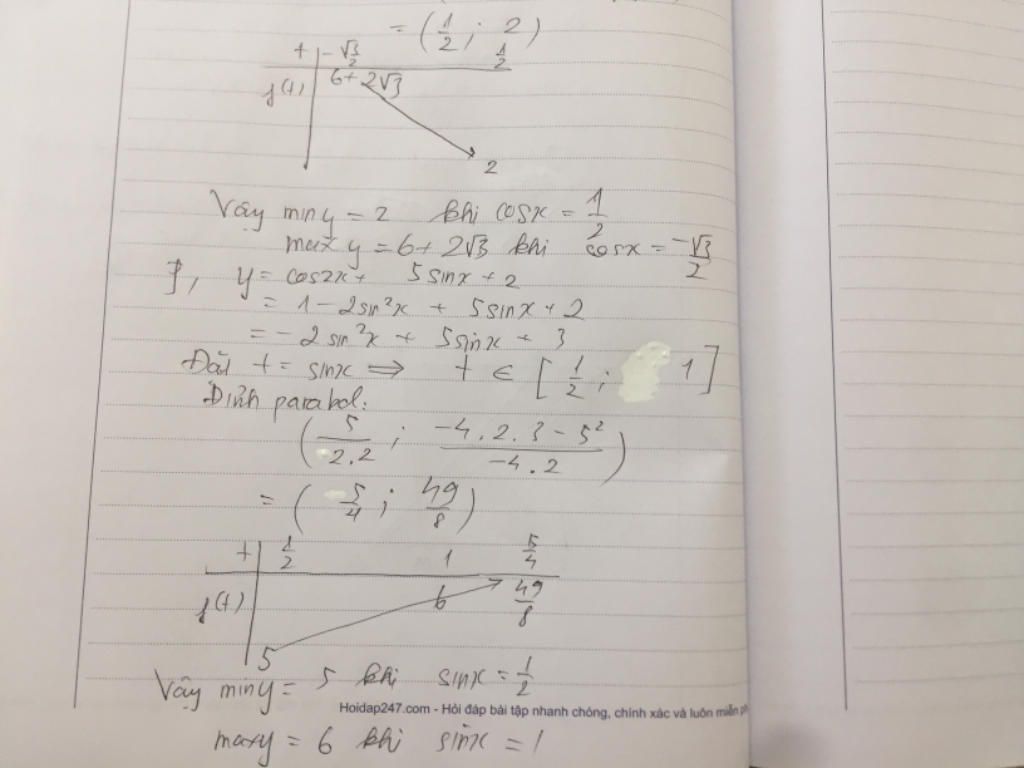 = (1/2 ; 2)
t | -√3/2 1/2
f(t) | 6+2√3 2
Vậy min y = 2 khi cosx = 1/2
max y = 6+2√3 khi cosx = -√3/2
f, y = cos2x + 5sinx + 2
= 1 - 2sin²x + 5sinx + 2
= -2sin²x + 5sinx + 3
Đặt t = sinx ⇒ t ∈ [1/2 ; 1]
Đỉnh parabol:
(5/2.2 ; -4.2.3-5²/-4.2)
= (5/4 ; 49/8)
t | 1/2 1 5/4
f(t) | 5 6 49/8
Vậy min y = 5 khi sinx = 1/2
Hoidap247.com - Hỏi đáp bài tập nhanh chóng, chính xác và luôn miễn ph
max y = 6 khi sinx = 1